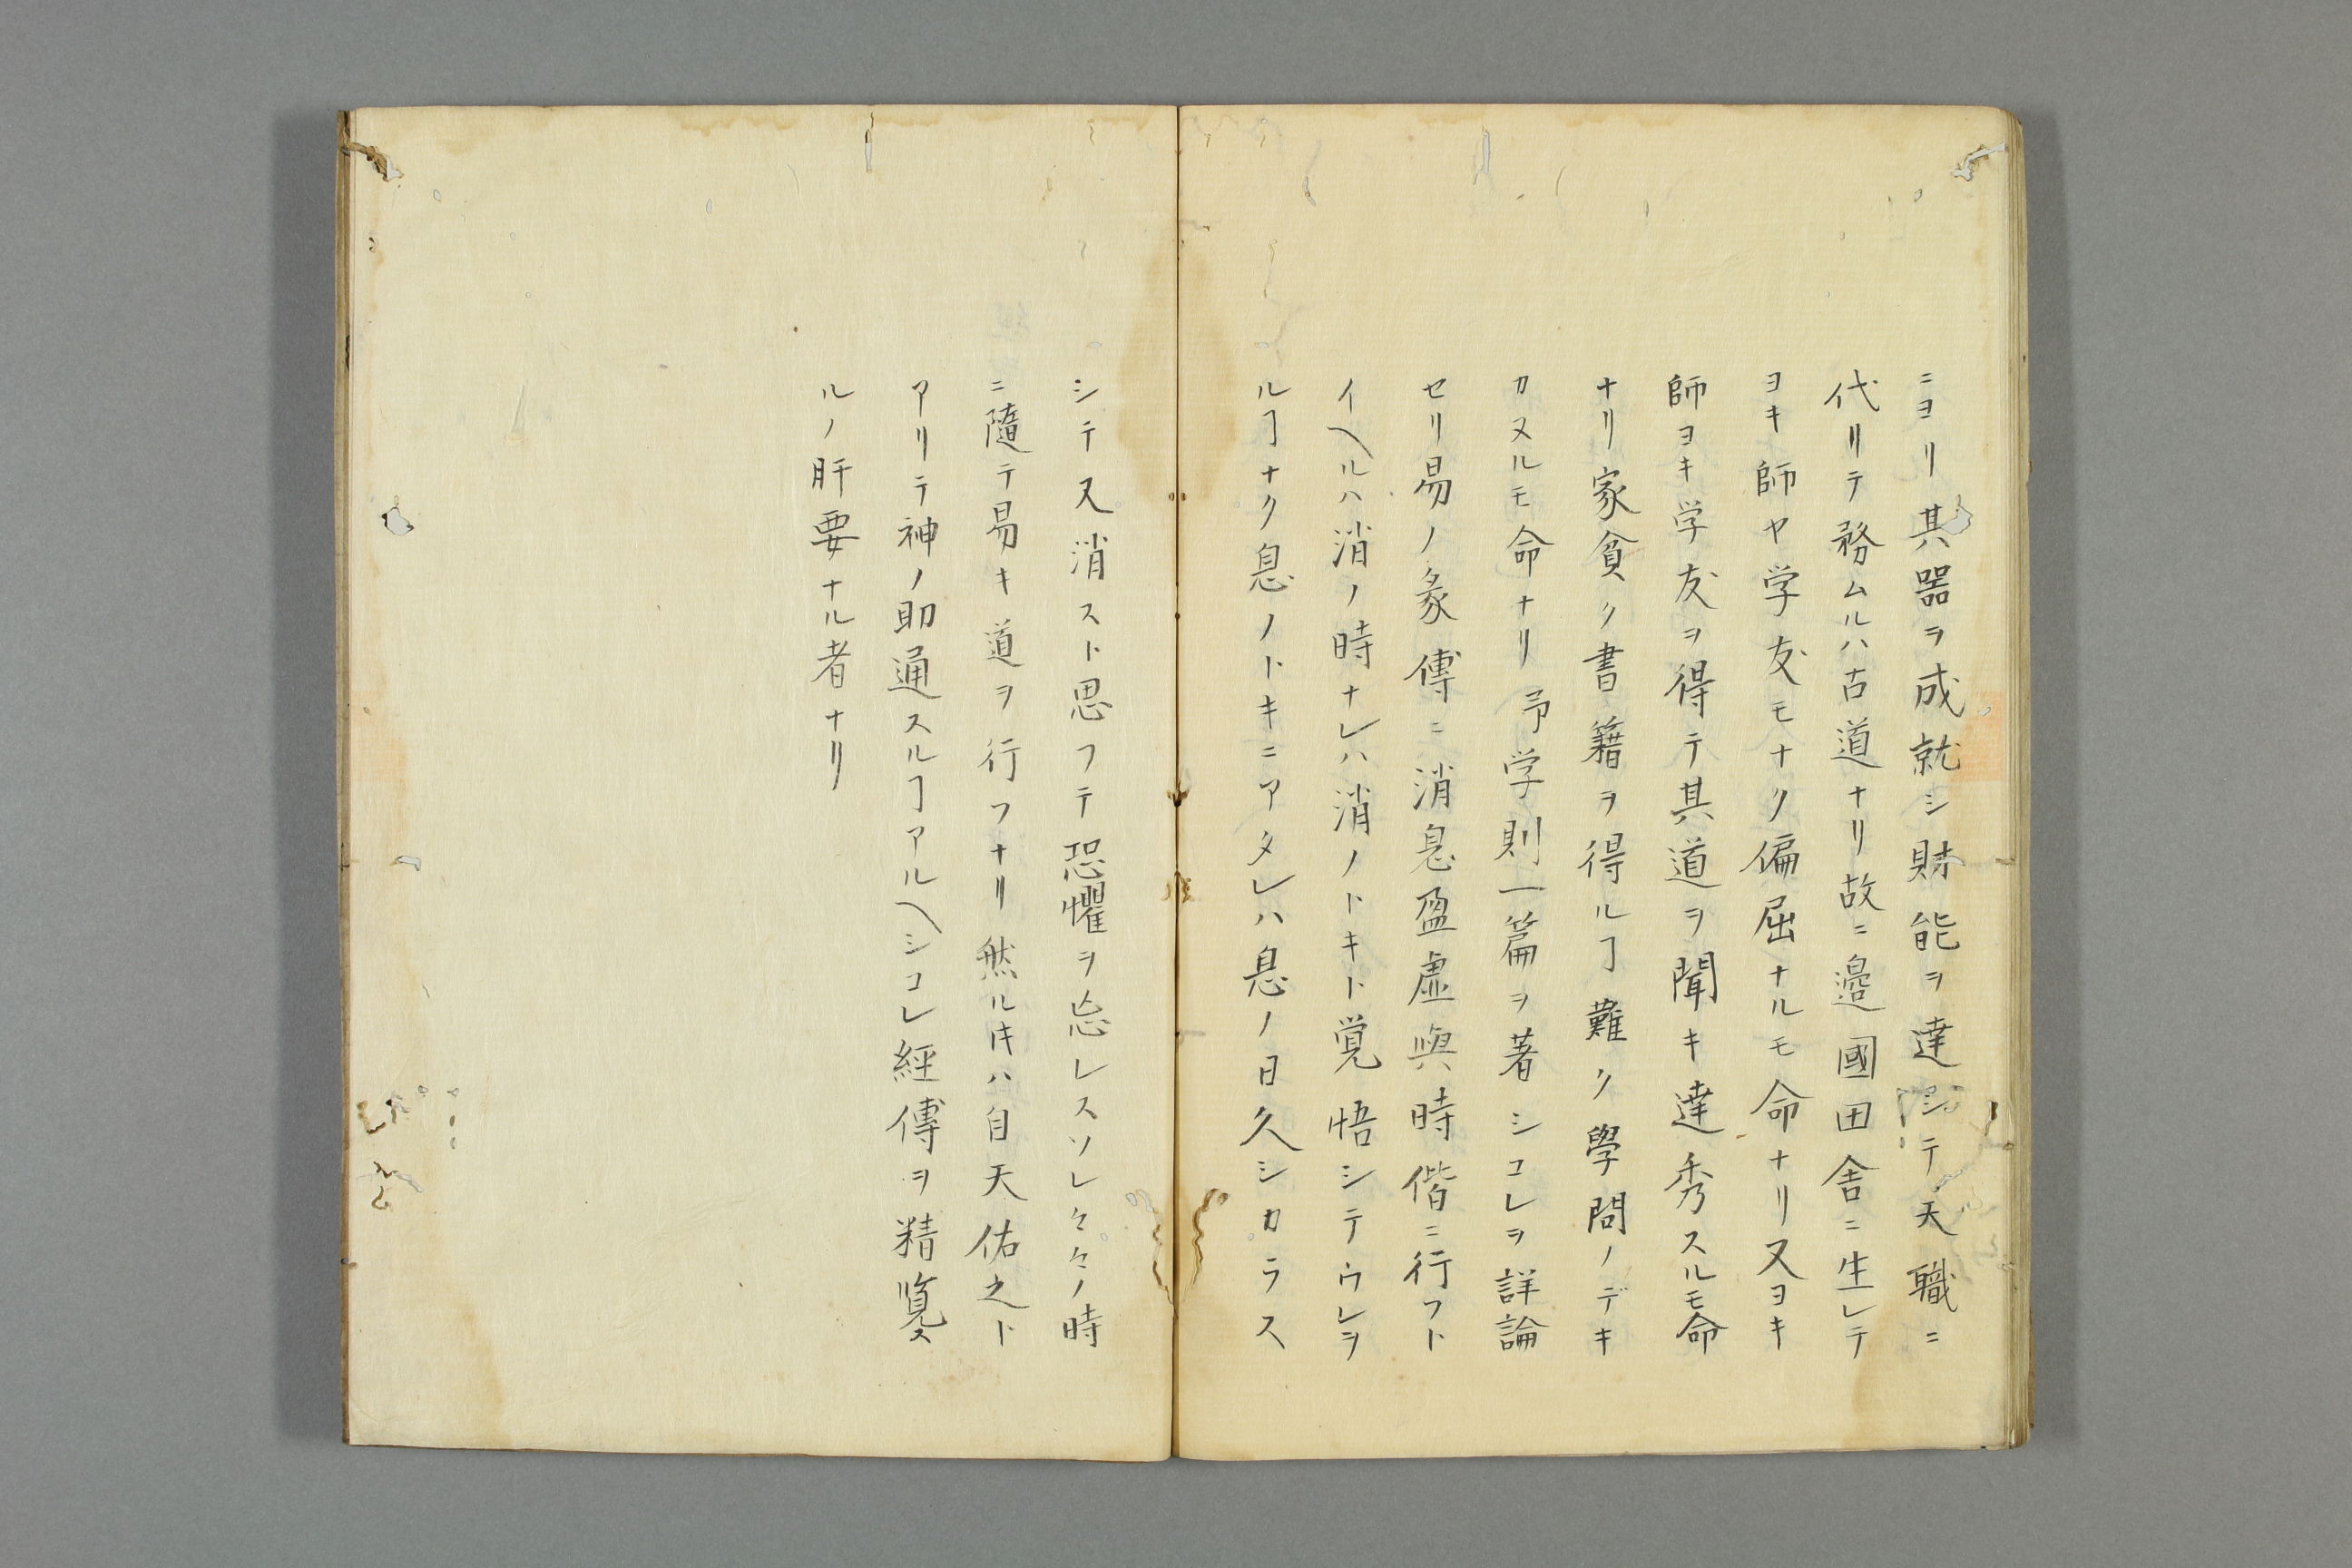 ニヨリ其器ヲ成就シ財能ヲ達シテ天職ニ
代リテ務ムルハ古道ナリ故ニ邉國田舎ニ生レテ
ヨキ師ヤ学友モナク偏屈ナルモ命ナリ又ヨキ
師ヨキ学友ヲ得テ其道ヲ聞キ達秀スルモ命
ナリ家貧ク書籍ヲ得ルヿ難ク學問ノデキ
カヌルモ命ナリ予学則一篇ヲ著シコレヲ詳論
セリ易ノ彖傳ニ消息盈虚與時偕ニ行フト
イヘルハ消ノ時ナレハ消ノトキト覚悟シテウレヲ
ルヿナク息ノトキニアタレハ息ノ日久シカラス
シテ又消スト思フテ恐懼ヲ忘レスソレ々々ノ時
ニ隨テ易キ道ヲ行フナリ然ル𪜈ハ自天佑之ト
アリテ神ノ助通スルヿアルヘシコレ經傳ヲ精覧ス
ルノ肝要ナル者ナリ